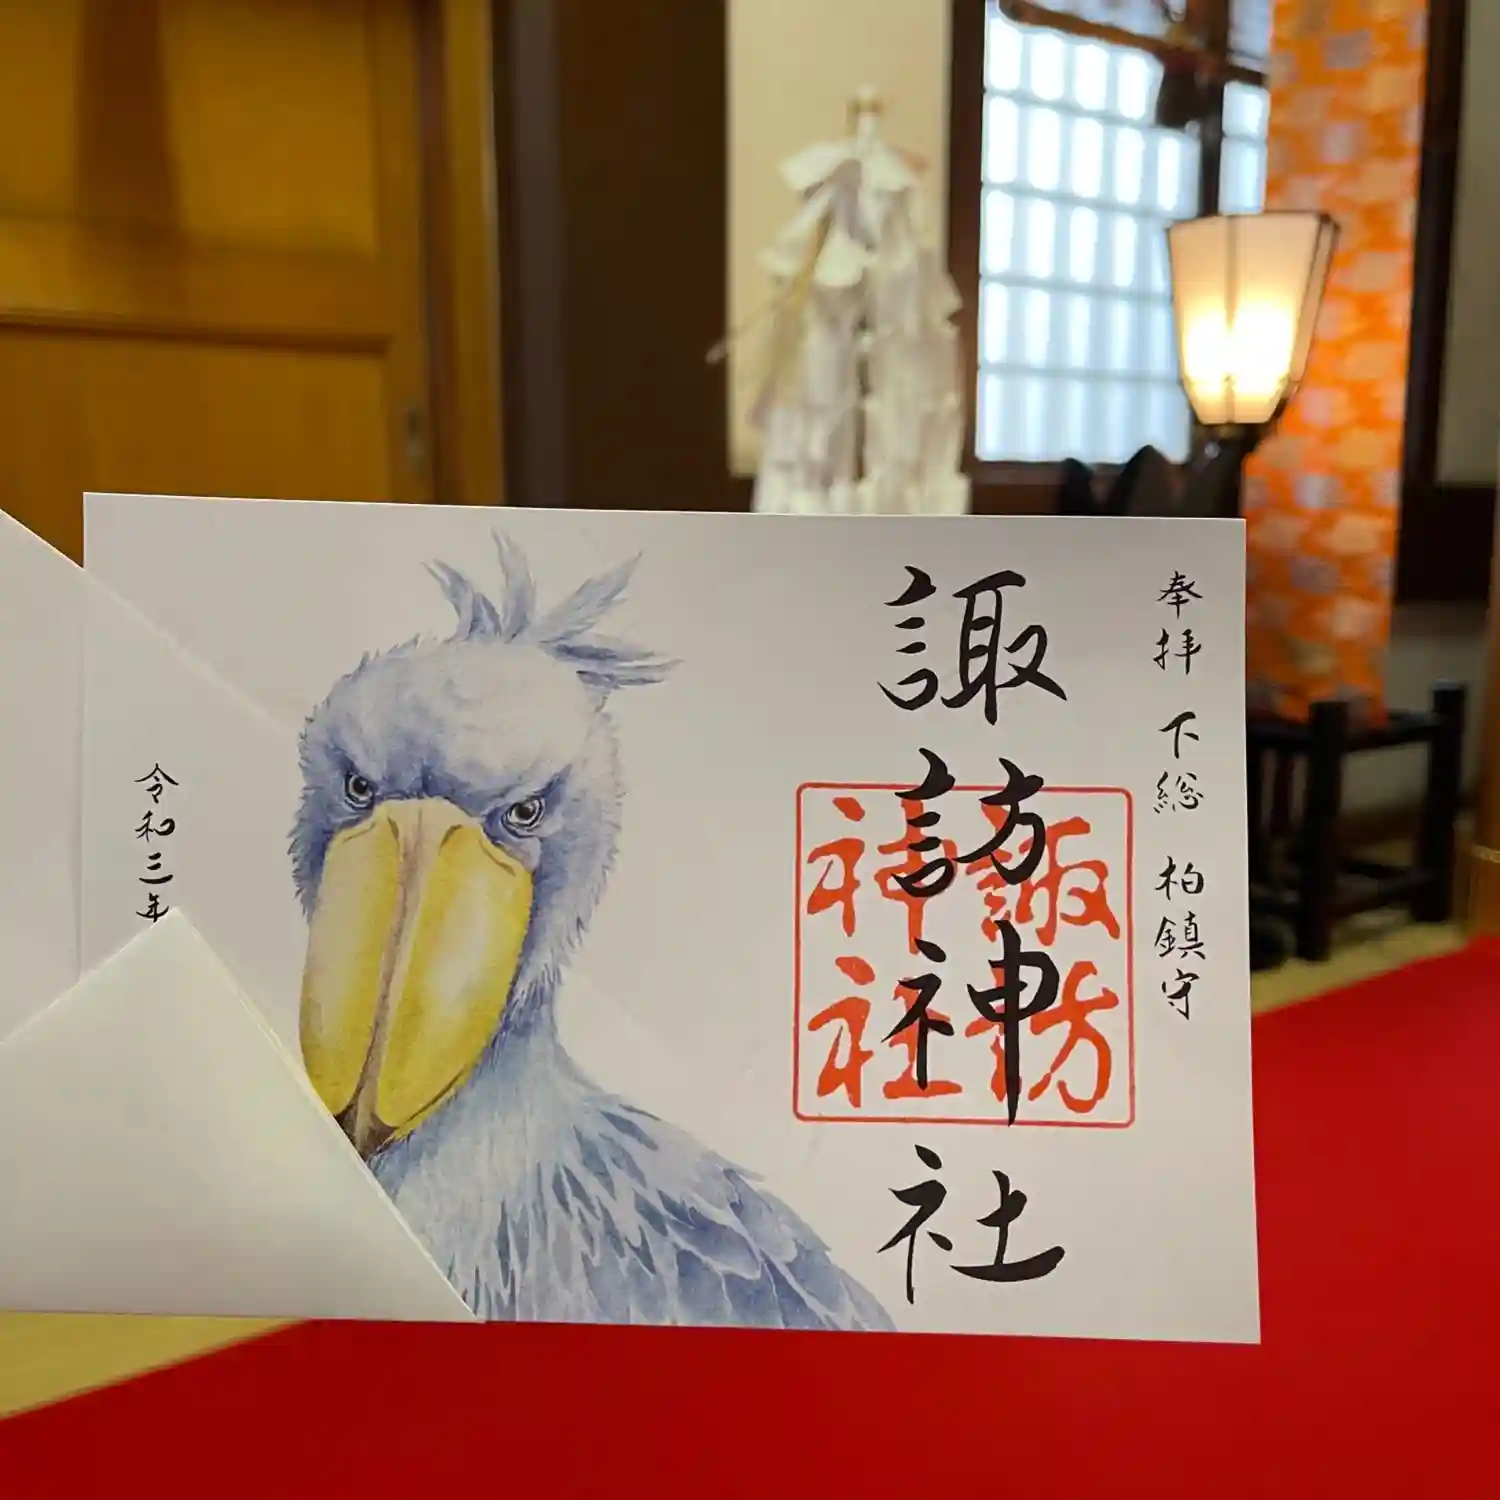 奉拝 下総 柏鎮守
諏訪神社
諏訪
神社
令和三年